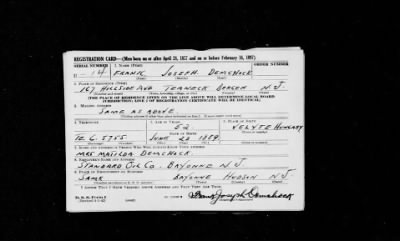 REGISTRATION CARD—(Men born on or after April 28, 1877 and on or before February 16, 1897)
SERIAL NUMBER 1. NAME (Print) ORDER NUMBER
U 14 FRANK JOSEPH DEMCHOCK
(First) (Middle) (Last)
2. PLACE OF RESIDENCE (Print)
167 HILLSIDE AVE TEANECK BERGEN N.J.
(Number and street) (Town, township, village, or city) (County) (State)
[THE PLACE OF RESIDENCE GIVEN ON THE LINE ABOVE WILL DETERMINE LOCAL BOARD
JURISDICTION; LINE 2 OF REGISTRATION CERTIFICATE WILL BE IDENTICAL]
3. MAILING ADDRESS
SAME AS ABOVE.
4. TELEPHONE 5. AGE IN YEARS 6. PLACE OF BIRTH
52 VELYTE HUNGARY
DATE OF BIRTH
TE. 6. 5755 JUNE 22 1889
7. NAME AND ADDRESS OF PERSON WHO WILL ALWAYS KNOW YOUR ADDRESS
MRS MATILDA DEMCHOCK.
8. EMPLOYER'S NAME AND ADDRESS
STANDARD OIL CO. BAYONNE N.J.
9. PLACE OF EMPLOYMENT OR BUSINESS
SAME BAYONNE HUDSON N.J.
I AFFIRM THAT I HAVE VERIFIED ABOVE ANSWERS AND THAT THEY ARE TRUE.
Frank Joseph Demchock